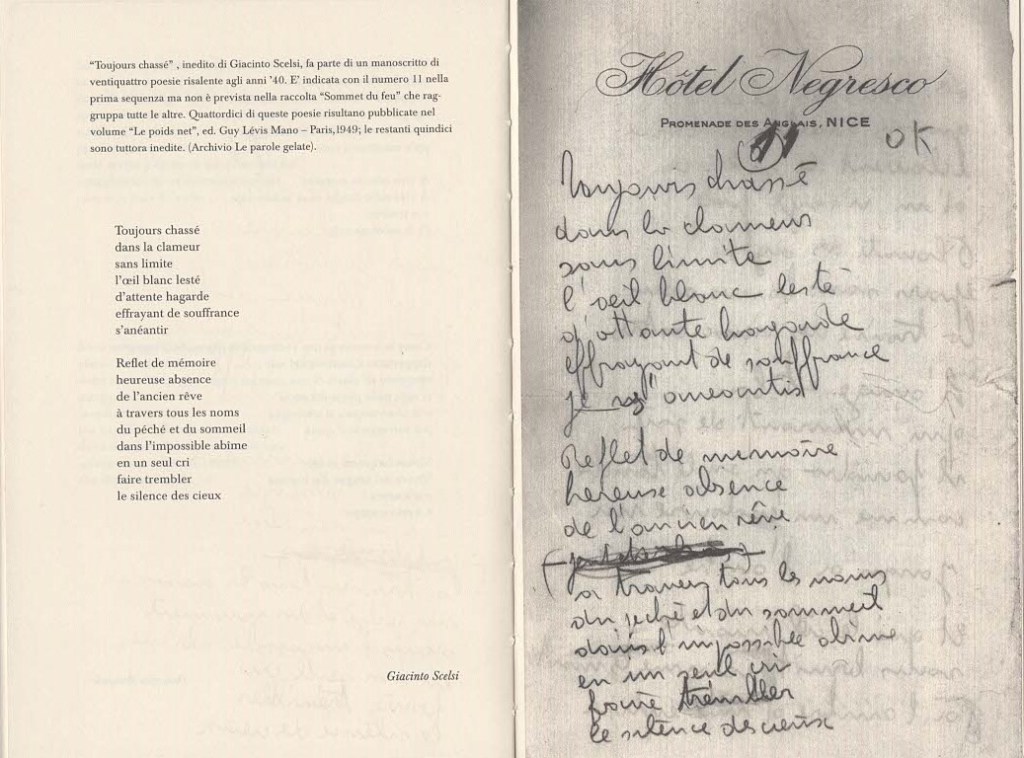 “Toujours chassé” , inedito di Giacinto Scelsi, fa parte di un manoscritto di
ventiquattro poesie risalente agli anni ’40. E’ indicata con il numero 11 nella
prima sequenza ma non è prevista nella raccolta “Sommet du feu” che rag-
gruppa tutte le altre. Quattordici di queste poesie risultano pubblicate nel
volume “Le poids net”, ed. Guy Lévis Mano – Paris,1949; le restanti quindici
sono tuttora inedite. (Archivio Le parole gelate).
Toujours chassé
dans la clameur
sans limite
l’œil blanc lesté
d’attente hagarde
effrayant de souffrance
s’anéantir
Reflet de mémoire
heureuse absence
de l’ancien rêve
à travers tous les noms
du péché et du sommeil
dans l’impossible abîme
en un seul cri
faire trembler
le silence des cieux
Giacinto Scelsi
Hôtel Negresco
PROMENADE DES ANGLAIS, NICE
11
OK
Toujours chassé
dans la clameur
sans limite
l'oeil blanc lesté
d'attente hagarde
effrayant de souffrance
je
Reflet de memoire
hereuse absence
de l'ancien rêve
a travers tous les noms
du péché et du sommeil
dans l'impossible abime
en un seul cri
faire trembler
le silence des cieux